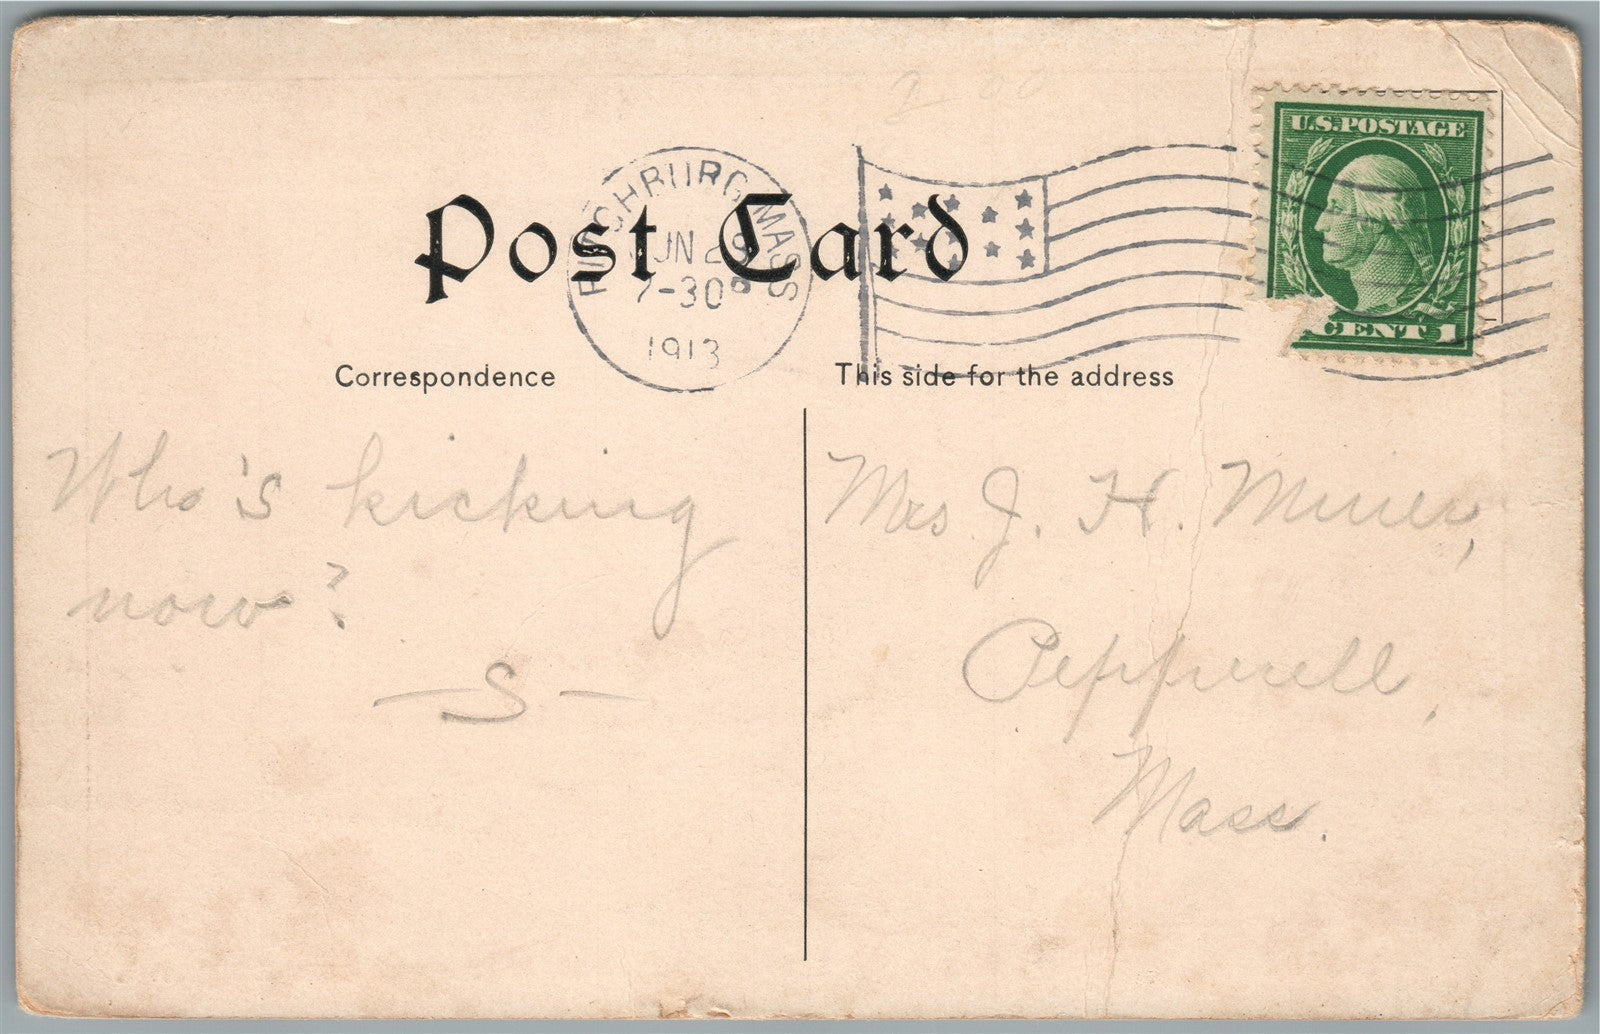 2 00
U.S. POSTAGE
FITCHBURG, MASS
JUN 29
7-30 P
1913
CENT 1
Post Card
Correspondence
This side for the address
Who's kicking
now?
— S —
Mrs J. H. Miner,
Pepperell,
Mass.